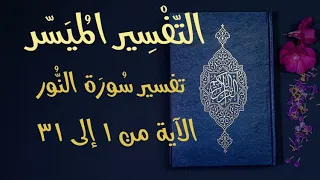 التَّفْسِير المُيَسَّر
تفسير سُورَة النُّور
الآية من ١ إلى ٣١
القرآن الكريم